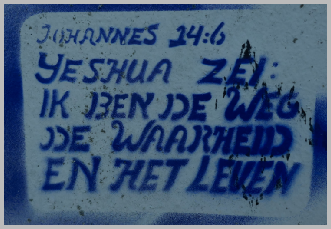 JOHANNES 14:6
YESHUA ZEI:
IK BEN DE WEG
DE WAARHEID
EN HET LEVEN